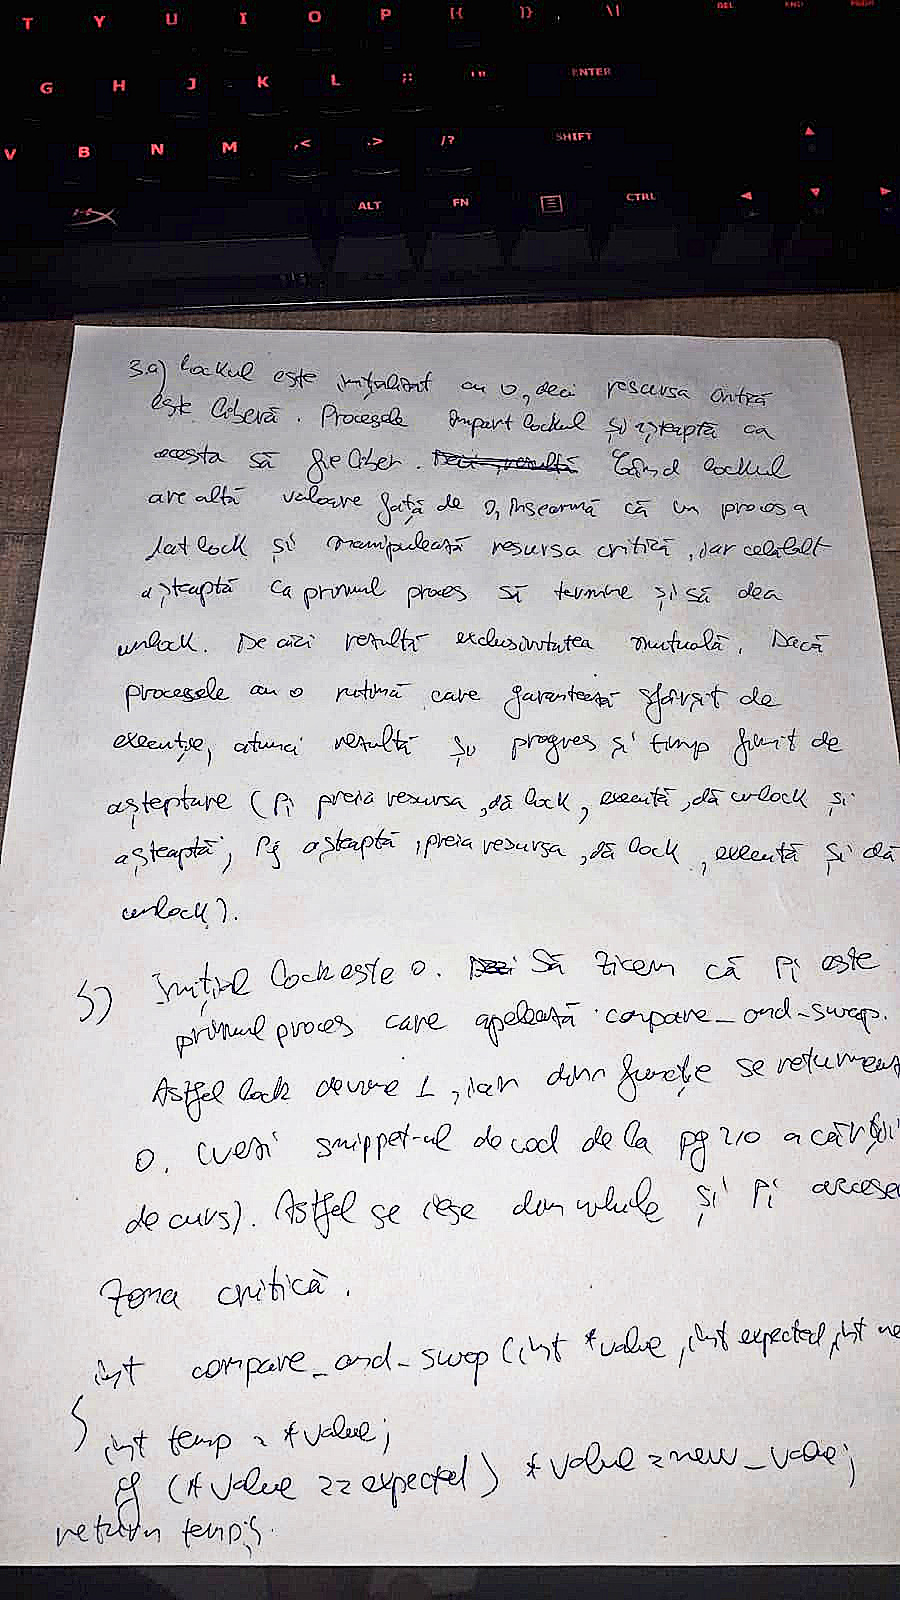 T Y U I O P [{ ]} \| DEL END PGDN
G H J K L ;: '" ENTER
V B N M ,< .> /? SHIFT
ALT FN CTRL
3.a) Lockul este inițializat cu 0, deci resursa critică
este liberă. Procesele împart lockul și așteaptă ca
acesta să fie liber. Deci, rezultă Când lockul
are altă valoare față de 0, înseamnă că un proces a
dat lock și manipulează resursa critică, iar celălalt
așteaptă ca primul proces să termine și să dea
unlock. De aici rezultă exclusivitatea mutuală. Dacă
procesele au o rutină care garantează sfârșit de
execuție, atunci rezultă și progres și timp finit de
așteptare (Pi preia resursa, dă lock, execută, dă unlock și
așteaptă; Pj așteaptă, preia resursa, dă lock, execută și dă
unlock).
b) Inițial lock este 0. Deci Să zicem că Pi este
primul proces care apelează compare_and_swap.
Astfel lock devine 1, iar din funcție se returnează
0. (vezi snippet-ul de cod de la pg 210 a cărții
de curs). Astfel se iese din while și Pi accese
zona critică.
int compare_and_swap (int *value, int expected, int ne
{
int temp = *value;
if (*value == expected) *value = new_value;
return temp;